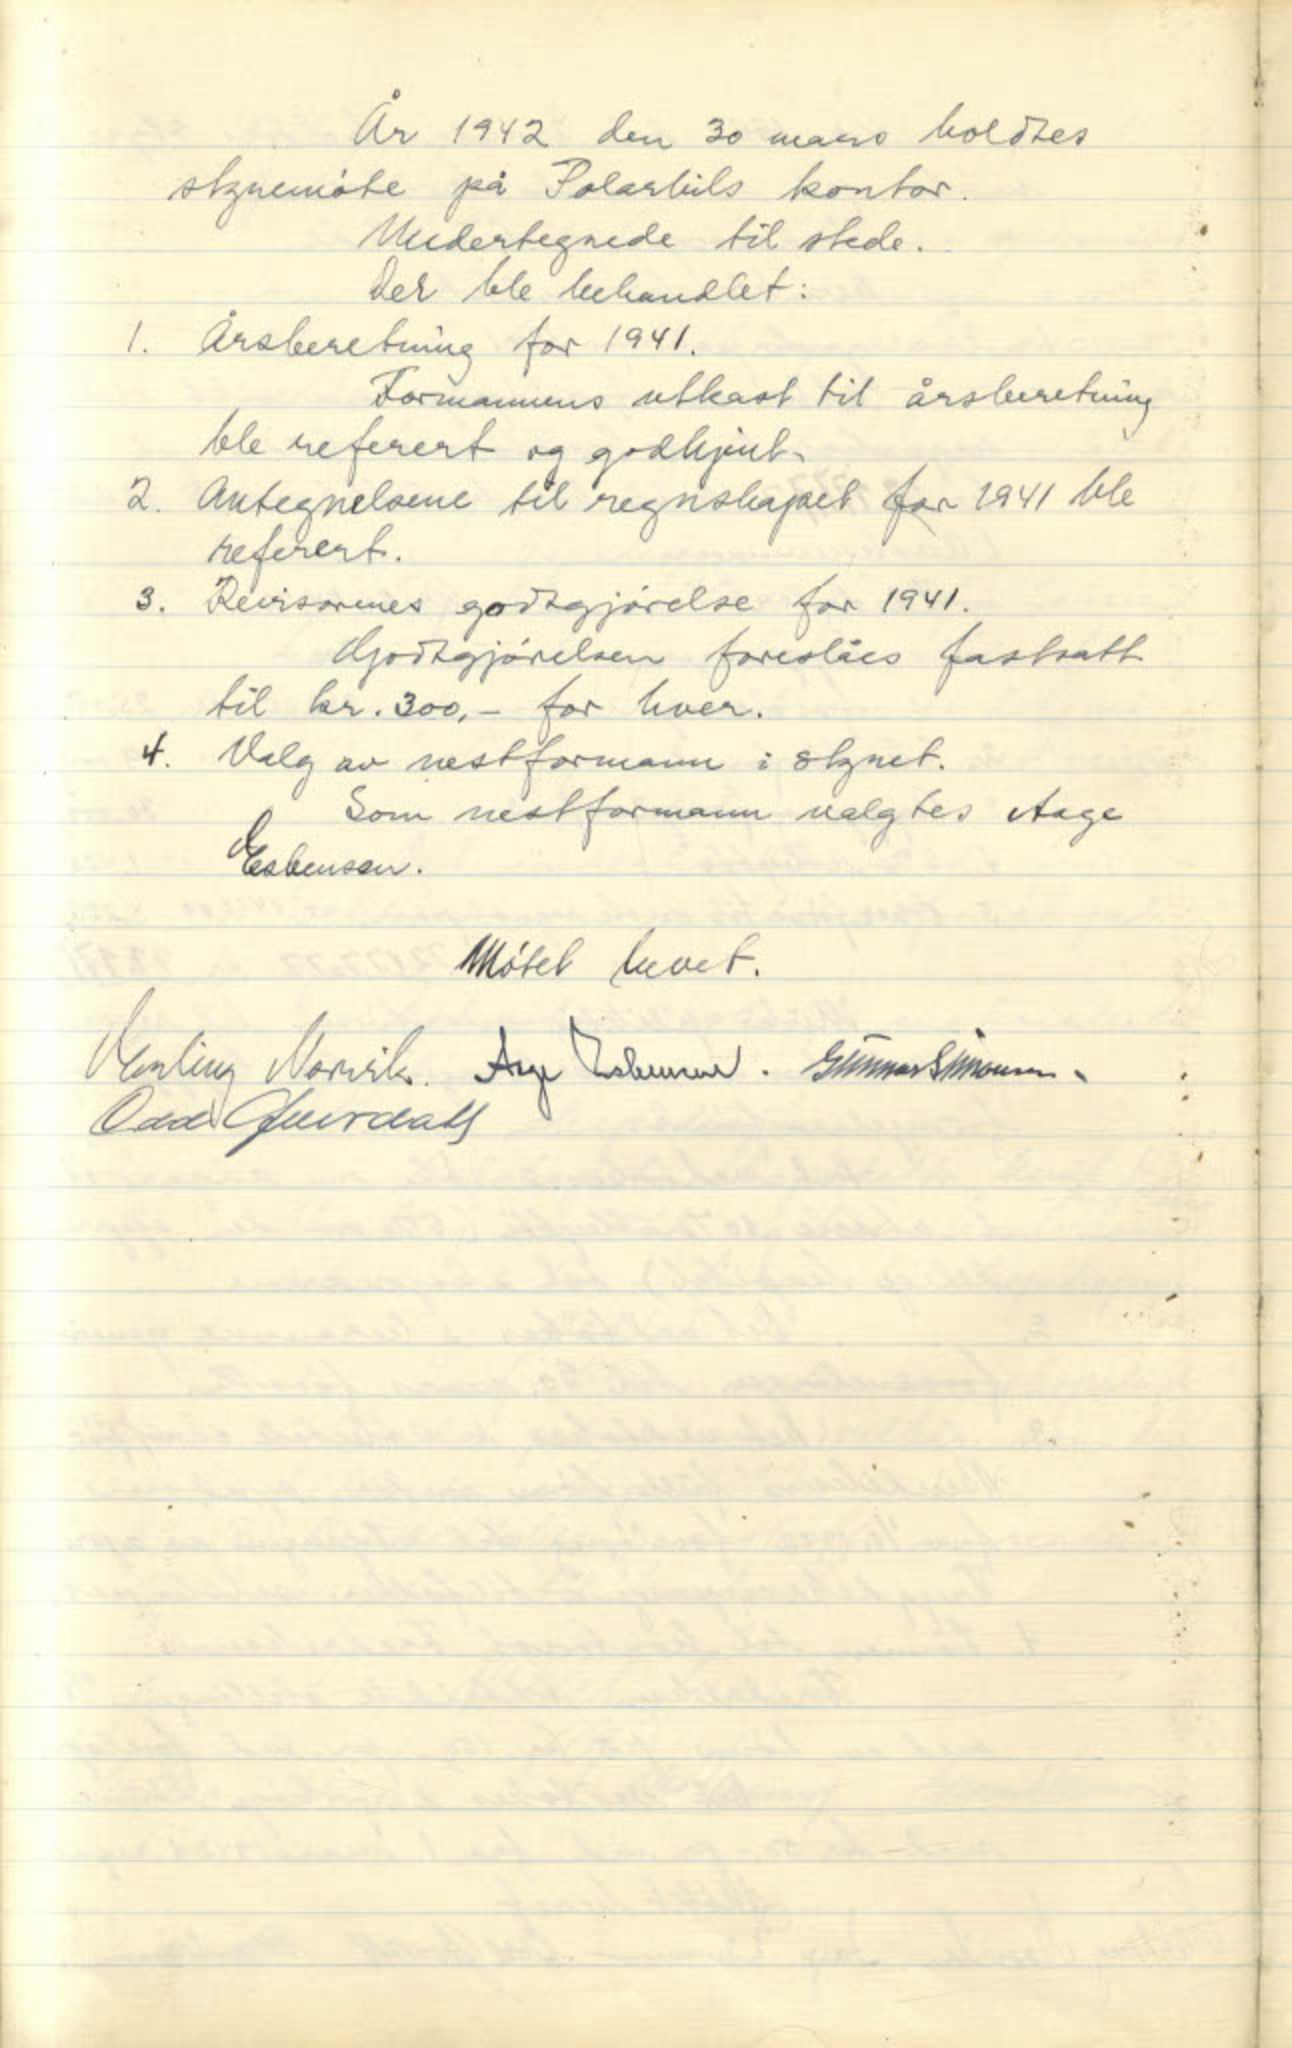 År 1942 den 30 mars holdtes
styremöte på Polarbils kontor.
Undertegnede til stede.
Der ble behandlet:
1. Årsberetning for 1941.
Formannens utkast til årsberetning
ble referert og godkjent.
2. Antegnelsene til regnskapet for 1941 ble
referert.
3. Revisorenes godtgjörelse for 1941.
Godtgjörelsen foreslåes fastsatt
til kr. 300,- for hver.
4. Valg av nestformann i styret.
Som nestformann valgtes Aage
Esbensen.
Mötet hevet.
Erling Norvik. Aage Esbensen. Gunnar Simonsen.
Odd